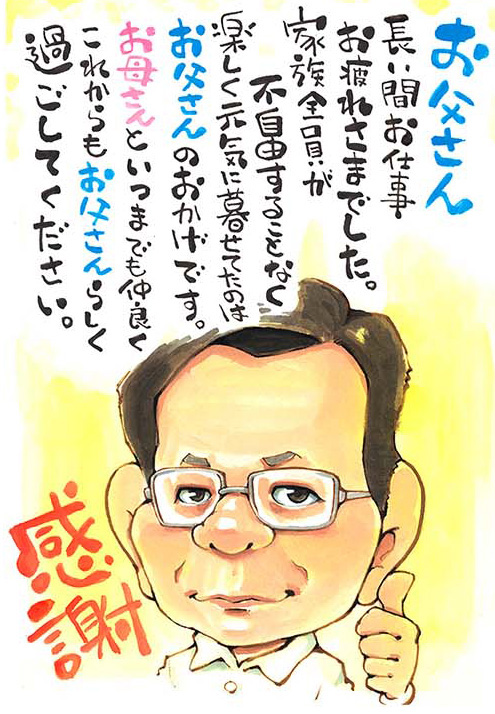 お父さん
長い間お仕事
お疲れさまでした。
家族全員が
不自由することなく
楽しく元気に暮せてたのは
お父さんのおかげです。
お母さんといつまでも仲良く
これからもお父さんらしく
過ごしてください。
感謝